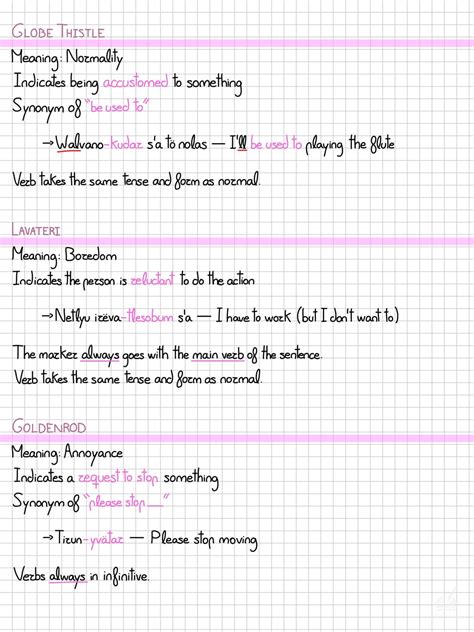 GLOBE THISTLE
Meaning: Normality
Indicates being accustomed to something
Synonym of "be used to"
→Walvano-kudaz s'a to nolas — I'll be used to playing the flute
Verb takes the same tense and form as normal.
LAVATERI
Meaning: Boredom
Indicates the person is reluctant to do the action
→Netlyu izëva-tlesobum s'a — I have to work (but I don't want to)
The marker always goes with the main verb of the sentence.
Verb takes the same tense and form as normal.
GOLDENROD
Meaning: Annoyance
Indicates a request to stop something
Synonym of "please stop __"
→Tizun-yvätaz — Please stop moving
Verbs always in infinitive.